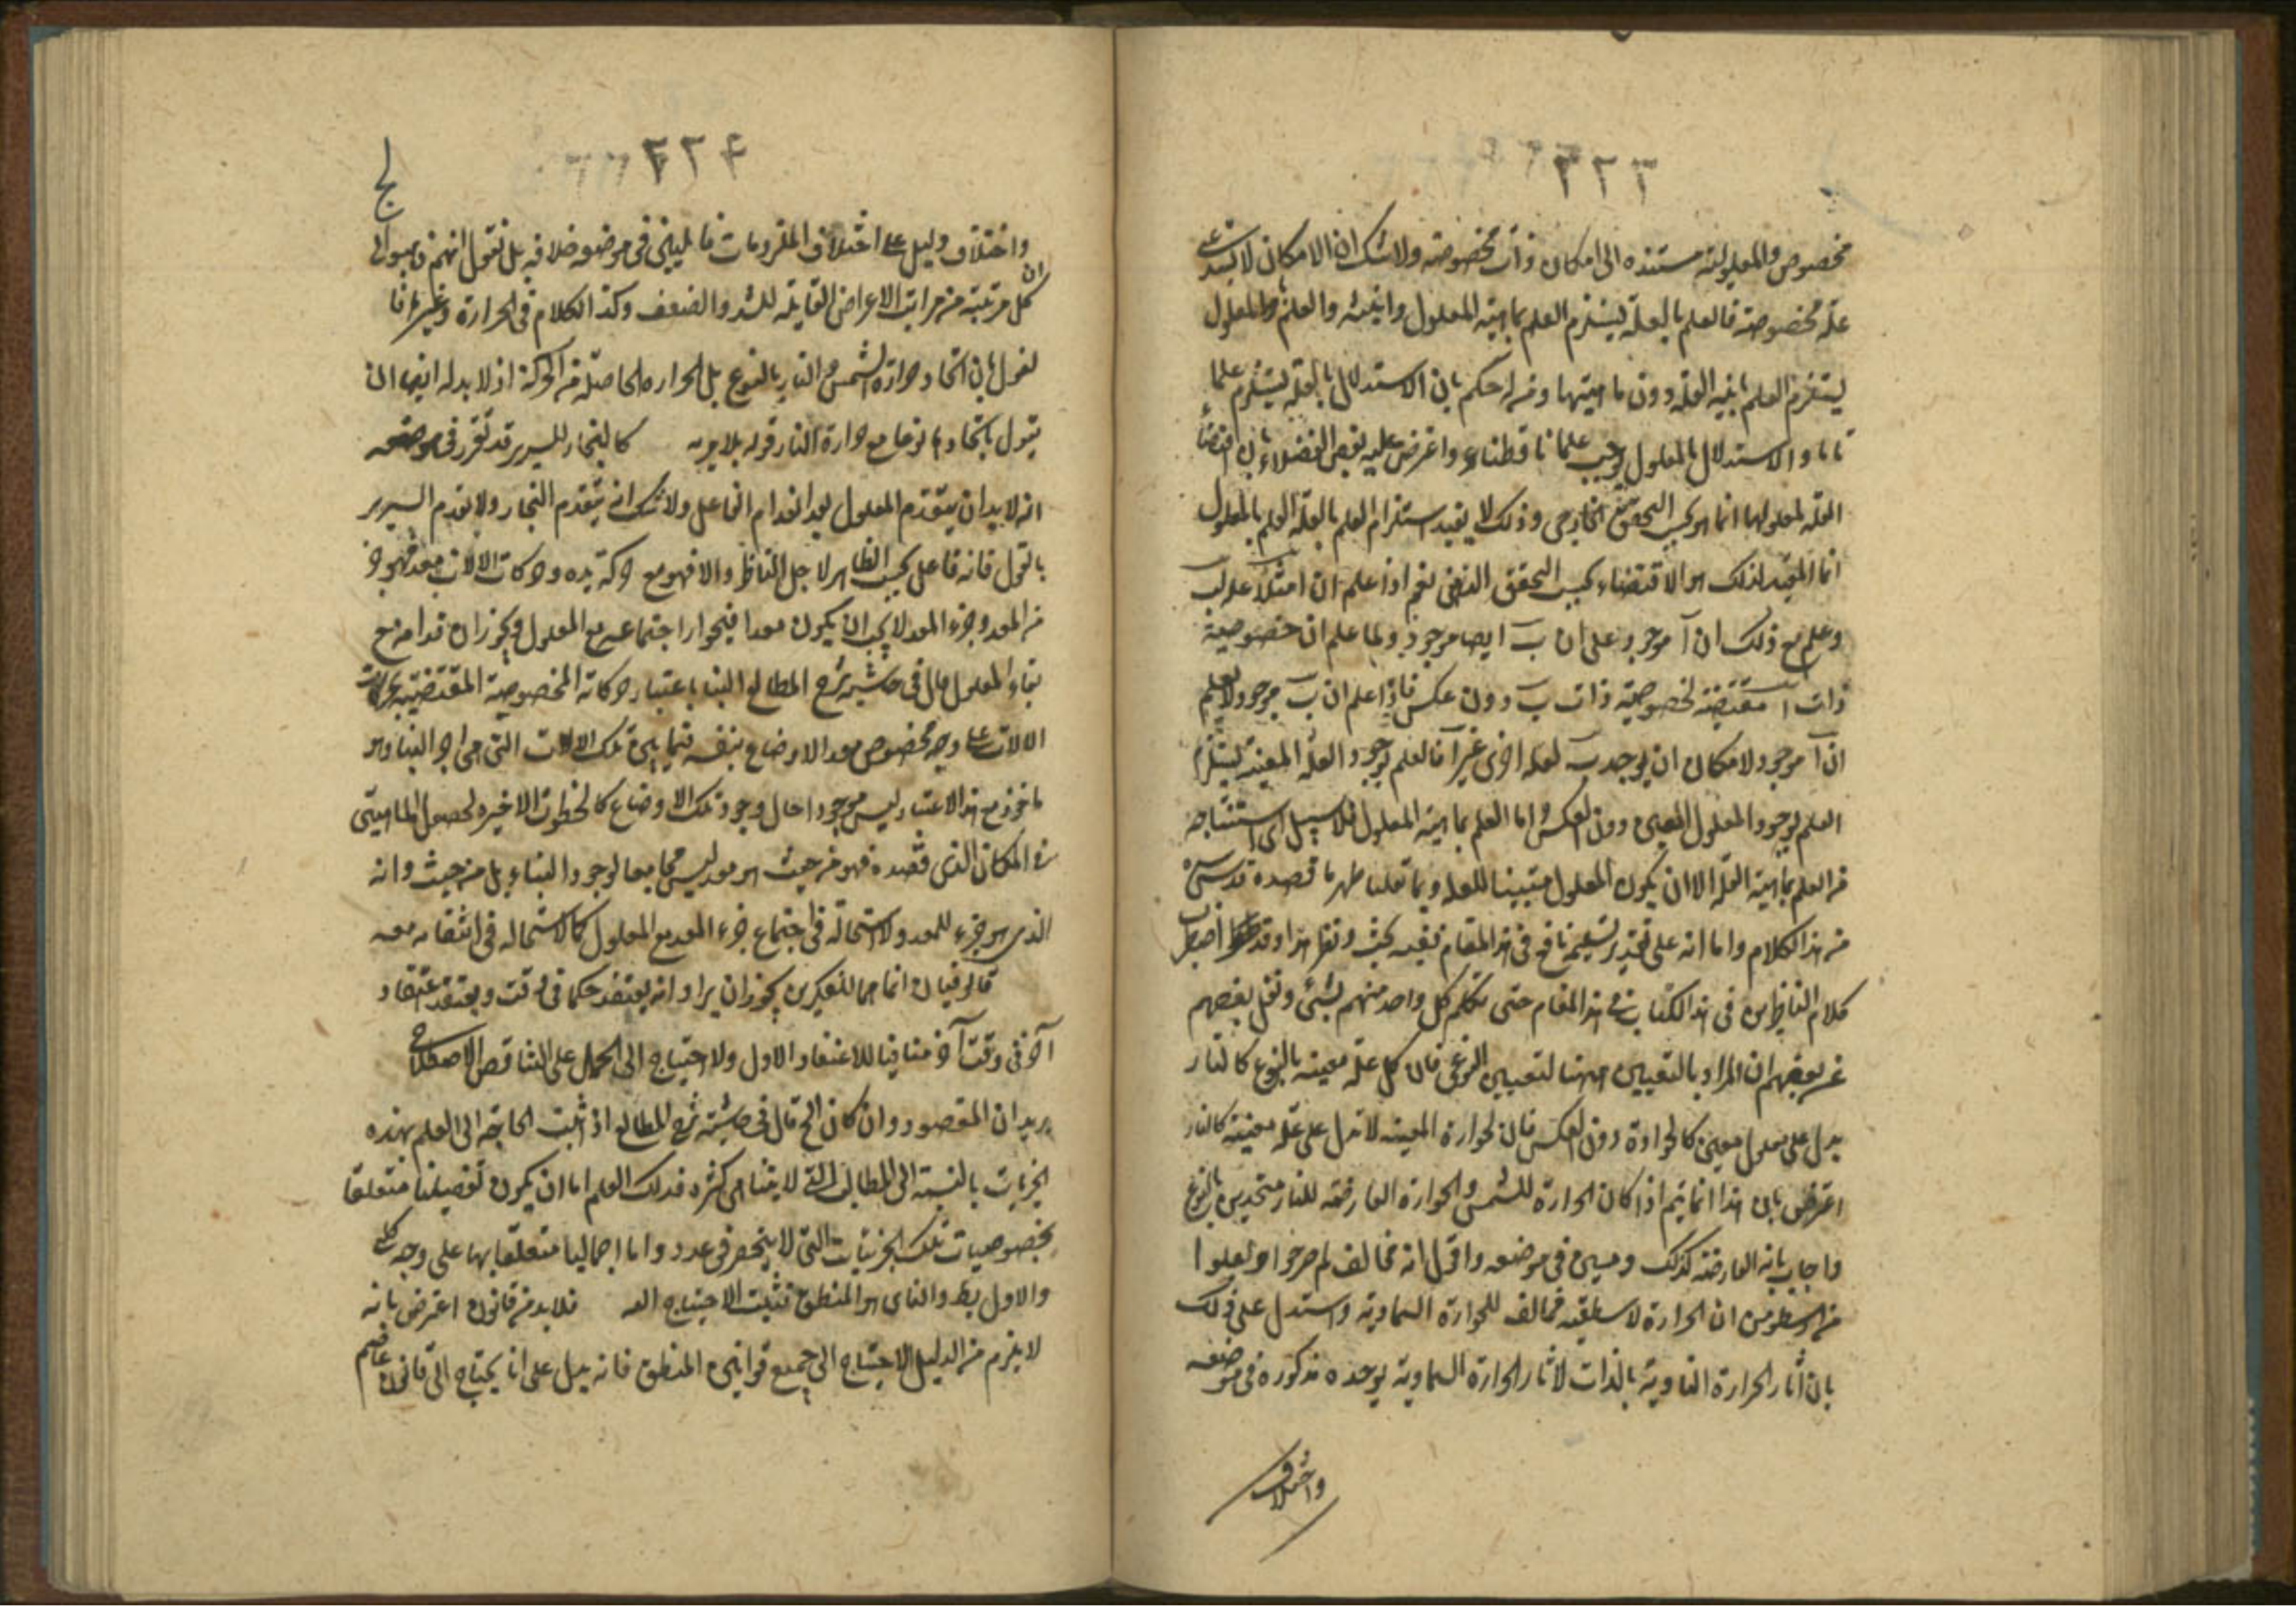 ٢٢٣
مخصوص والمعلولية مستنده الى امكان ذات مخصوصة ولا شك ان الامكان لا يستدعى
علة مخصوصة فالعلم بالعلة يستلزم العلم بماهية المعلول وانيته والعلم بالمعلول
يستلزم العلم بانية العلة دون ماهيتها ومن احكم بان الاستدلال بالعلة يستلزم علما
تاما والاستدلال بالمعلول يوجب علما ناقصا واعترض عليه بعض الفضلاء بان اقتضاء
العلة لمعلولها انما هو بحسب التحقق الخارجى وذلك لا يفيد استلزام العلم بالعلة العلم بالمعلول
انما المفيد لذلك هو الاقتضاء بحسب التحقق الذهنى نعم اذا علم ان ا مثلا علة لب
وعلم مع ذلك ان ا موجود علم ان ب ايضا موجود ولما علم ان خصوصية
ذات ا مقتضية لخصوصية ذات ب دون عكس فاذا علم ان ب موجود لا يعلم
ان ا موجود لامكان ان يوجد ب لعلة اخرى غير ا فالعلم بوجود العلة المعينة يستلزم
العلم بوجود المعلول المعين دون العكس واما العلم بماهية المعلول فلا سبيل الى استنتاجه
من العلم بماهية العلة الا ان يكون المعلول مبينا للعلة وبما نقلنا ظهر ما قصده قدس سره
من هذا الكلام واما انه على تقدير تسليمه نافع فى هذا المقام ففيه بحث ونظر هذا وقد اضطرب
كلام الناظرين فى هذا الكتاب فى هذا المقام حتى تكلم كل واحد منهم بشئ ونقل بعضهم
عن بعضهم ان المراد بالتعيين ههنا التعيين النوعى فان كل علة معينة بالنوع كالنار
يدل على معلول معين كالحرارة دون العكس فان الحرارة المعينة لا تدل على علة معينة كالنار
اعترض بان هذا انما يتم اذا كان الحرارة للشمس والحرارة العارضة للنار متحدين بالنوع
واجاب بانه العارضة كذلك وسيجئ فى موضعه واقول انه مخالف لما صرحوا ونقلوا
من ارسطو من ان الحرارة الاسطقسية مخالف للحرارة السماوية واستدل على ذلك
بان اثار الحرارة النارية بالذات لاثار الحرارة السماوية يوجده مذكورة فى موضعه
واختلاف
٢٢٤
واختلاف دليل على اختلاف الملزومات فما يبنى فى موضعه خلافه بل نقول انهم ذهبوا الى
ان كل مرتبة من مراتب الاعراض القابلة للشدة والضعف وكذا الكلام فى الحرارة وغيرها
لقول بان اتحاد حرارة الشمس والنار بالنوع بل الحرارة الحاصلة من الحركة اذ لا بد له ايضا ان
يقول باتحاد نوعها مع حرارة النار قوله بلا مرية كالنجار للسرير قد تقرر فى موضعه
انه لا بد ان ينعدم المعلول بعد انعدام الفاعل ولا شك انه ينعدم النجار ولا ينعدم السرير
فانه فاعل بحسب الظاهر لاجل الناظر والا فهو مع حركة يده وحركات الالات معد فهو جزء
من المعد وجزء المعد لا يجب ان يكون معدا فيجوز اجتماعه مع المعلول ويجوز ان
بقاء المعلول قال فى حاشية شرح المطالع البناء باعتبار حركاته المخصوصة المقتضية لحركات
الالات على وجه مخصوص معد لاوضاع بنفسه فيما بين تلك الالات التى هى اجزاء البناء وهو
ماخوذ مع هذا الاعتبار ليس موجودا حال وجود تلك الاوضاع كالخطوة الاخيرة لحصول الماشى
فى المكان الذى قصده فهو من حيث هو معد ليس مجامعا لوجود البناء بل من حيث ذاته
الذى هو جزء للمعد ولا استحالة فى اجتماع جزء المعد مع المعلول كما لا استحالة فى انتفائه معه
قوله فيان انما هما لتفكيرين يجوز ان يراد انه يعتقد حكما فى وقت ويعتقد اعتقادا
اخر فى وقت آخر منافيا للاعتقاد الاول ولا احتياج الى الحمل على التناقض الاصطلاحى
يريد ان المقصود وان كان الخ قال فى حاشية شرح المطالع اذا ثبت الحاجة الى العلم بهذه
الجزئيات بالنسبة الى المطالب التى لا يتناهى كثرة فذلك العلم اما ان يكون تفصيليا متعلقا
بخصوصيات تلك الجزئيات التى لا ينحصر فى عدد واما اجماليا متعلقا بها على وجه كلى
والاول بط والثانى هو المنطق فثبت الاحتياج اليه فلا بد من قانون اعترض بانه
لا يلزم من الدليل الاحتياج الى جميع قوانين المنطق فانه يدل على انا يحتاج الى قانون عاصم